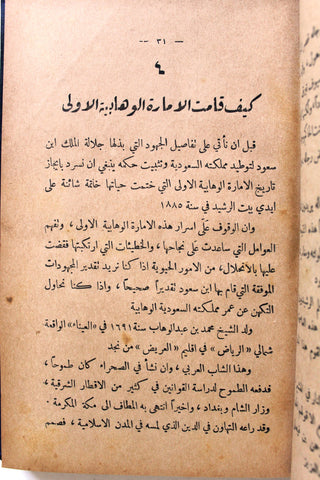 — ٣١ —
٤
كيف قامت الامارة الوهابية الاولى
قبل ان نأتي على تفاصيل الجهود التي بذلها جلالة الملك ابن
سعود لتوطيد مملكته السعودية وتثبيت حكمه ينبغي ان نسرد بايجاز
تاريخ الامارة الوهابية الاولى التي ختمت حياتها خاتمة شائنة على
ايدي بيت الرشيد في سنة ١٨٨٥
وان الوقوف على اسرار هذه الامارة الوهابية الاولى ، وتفهم
العوامل التي ساعدت على نجاحها، والخطيئات التي ارتكبتها فقضت
عليها بالانحلال، من الامور الحيوية اذا كنا نريد تقدير المجهودات
الموفقة التي قام بها ابن سعود تقديراً صحيحاً ، واذا كنا نحاول
التكهن عن عمر مملكته السعودية الوهابية
ولد الشيخ محمد بن عبد الوهاب سنة ١٦٩١ في «العيناء» الواقعة
شمالي «الرياض» في اقليم «العريض» من نجد
وهذا الشاب العربي ، وان نشأ في الصحراء كان طموحاً ،
فدفعه الطموح لدراسة القوانين في كثير من الاقطار الشرقية ،
وزار الشام وبغداد ، واخيراً انتهى به المطاف الى مكة المكرمة ·
وقد راعه التهاون في الدين الذي لمسه في المدن الاسلامية ، فصمم